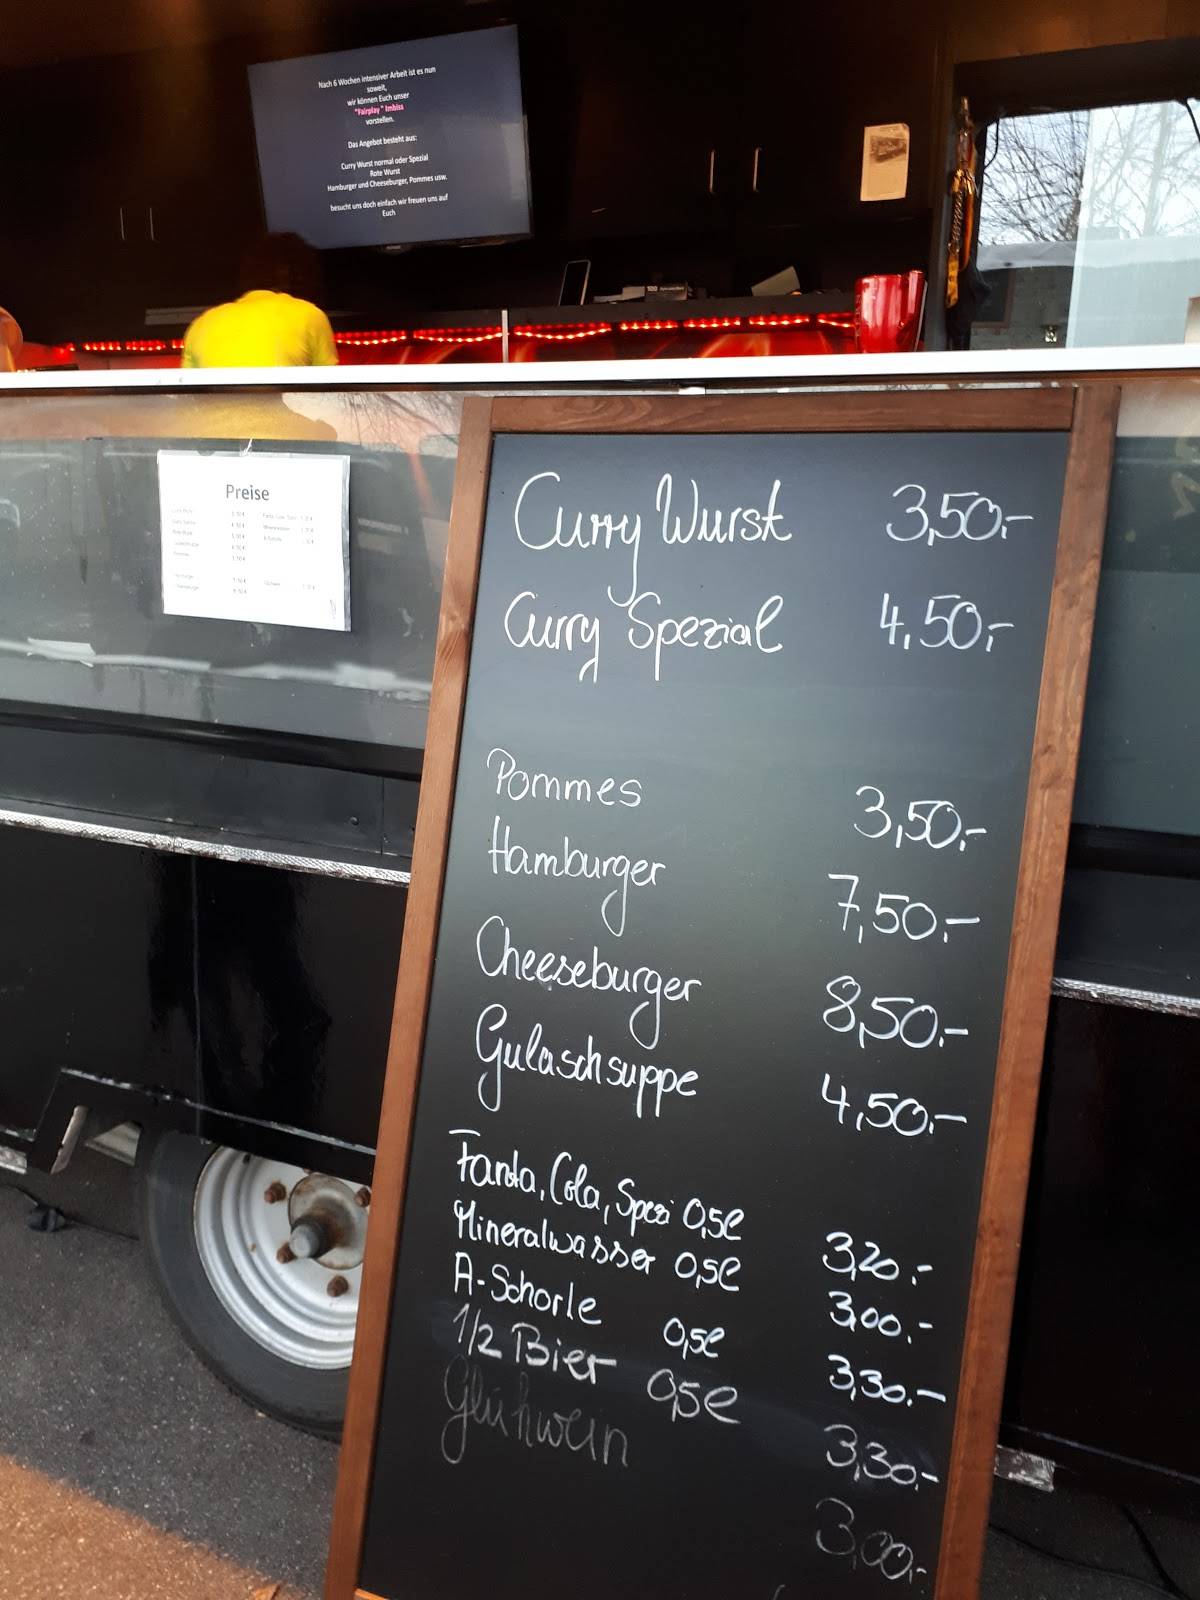 Nach 6 Wochen intensiver Arbeit ist es nun
soweit,
wir können Euch unser
"Fairplay" Imbiss
vorstellen.
Das Angebot besteht aus:
Curry Wurst normal oder Spezial
Rote Wurst
Hamburger und Cheeseburger, Pommes usw.
besucht uns doch einfach wir freuen uns auf
Euch
Preise
Curry Wurst 3,50.-
Curry Spezial 4,50.-
Pommes 3,50.-
Hamburger 7,50.-
Cheeseburger 8,50.-
Gulaschsuppe 4,50.-
Fanta, Cola, Spezi 0,5l 3,20.-
Mineralwasser 0,5l 3,00.-
A-Schorle 0,5l 3,30.-
1/2 Bier 0,5l 3,30.-
Glühwein 3,00.-